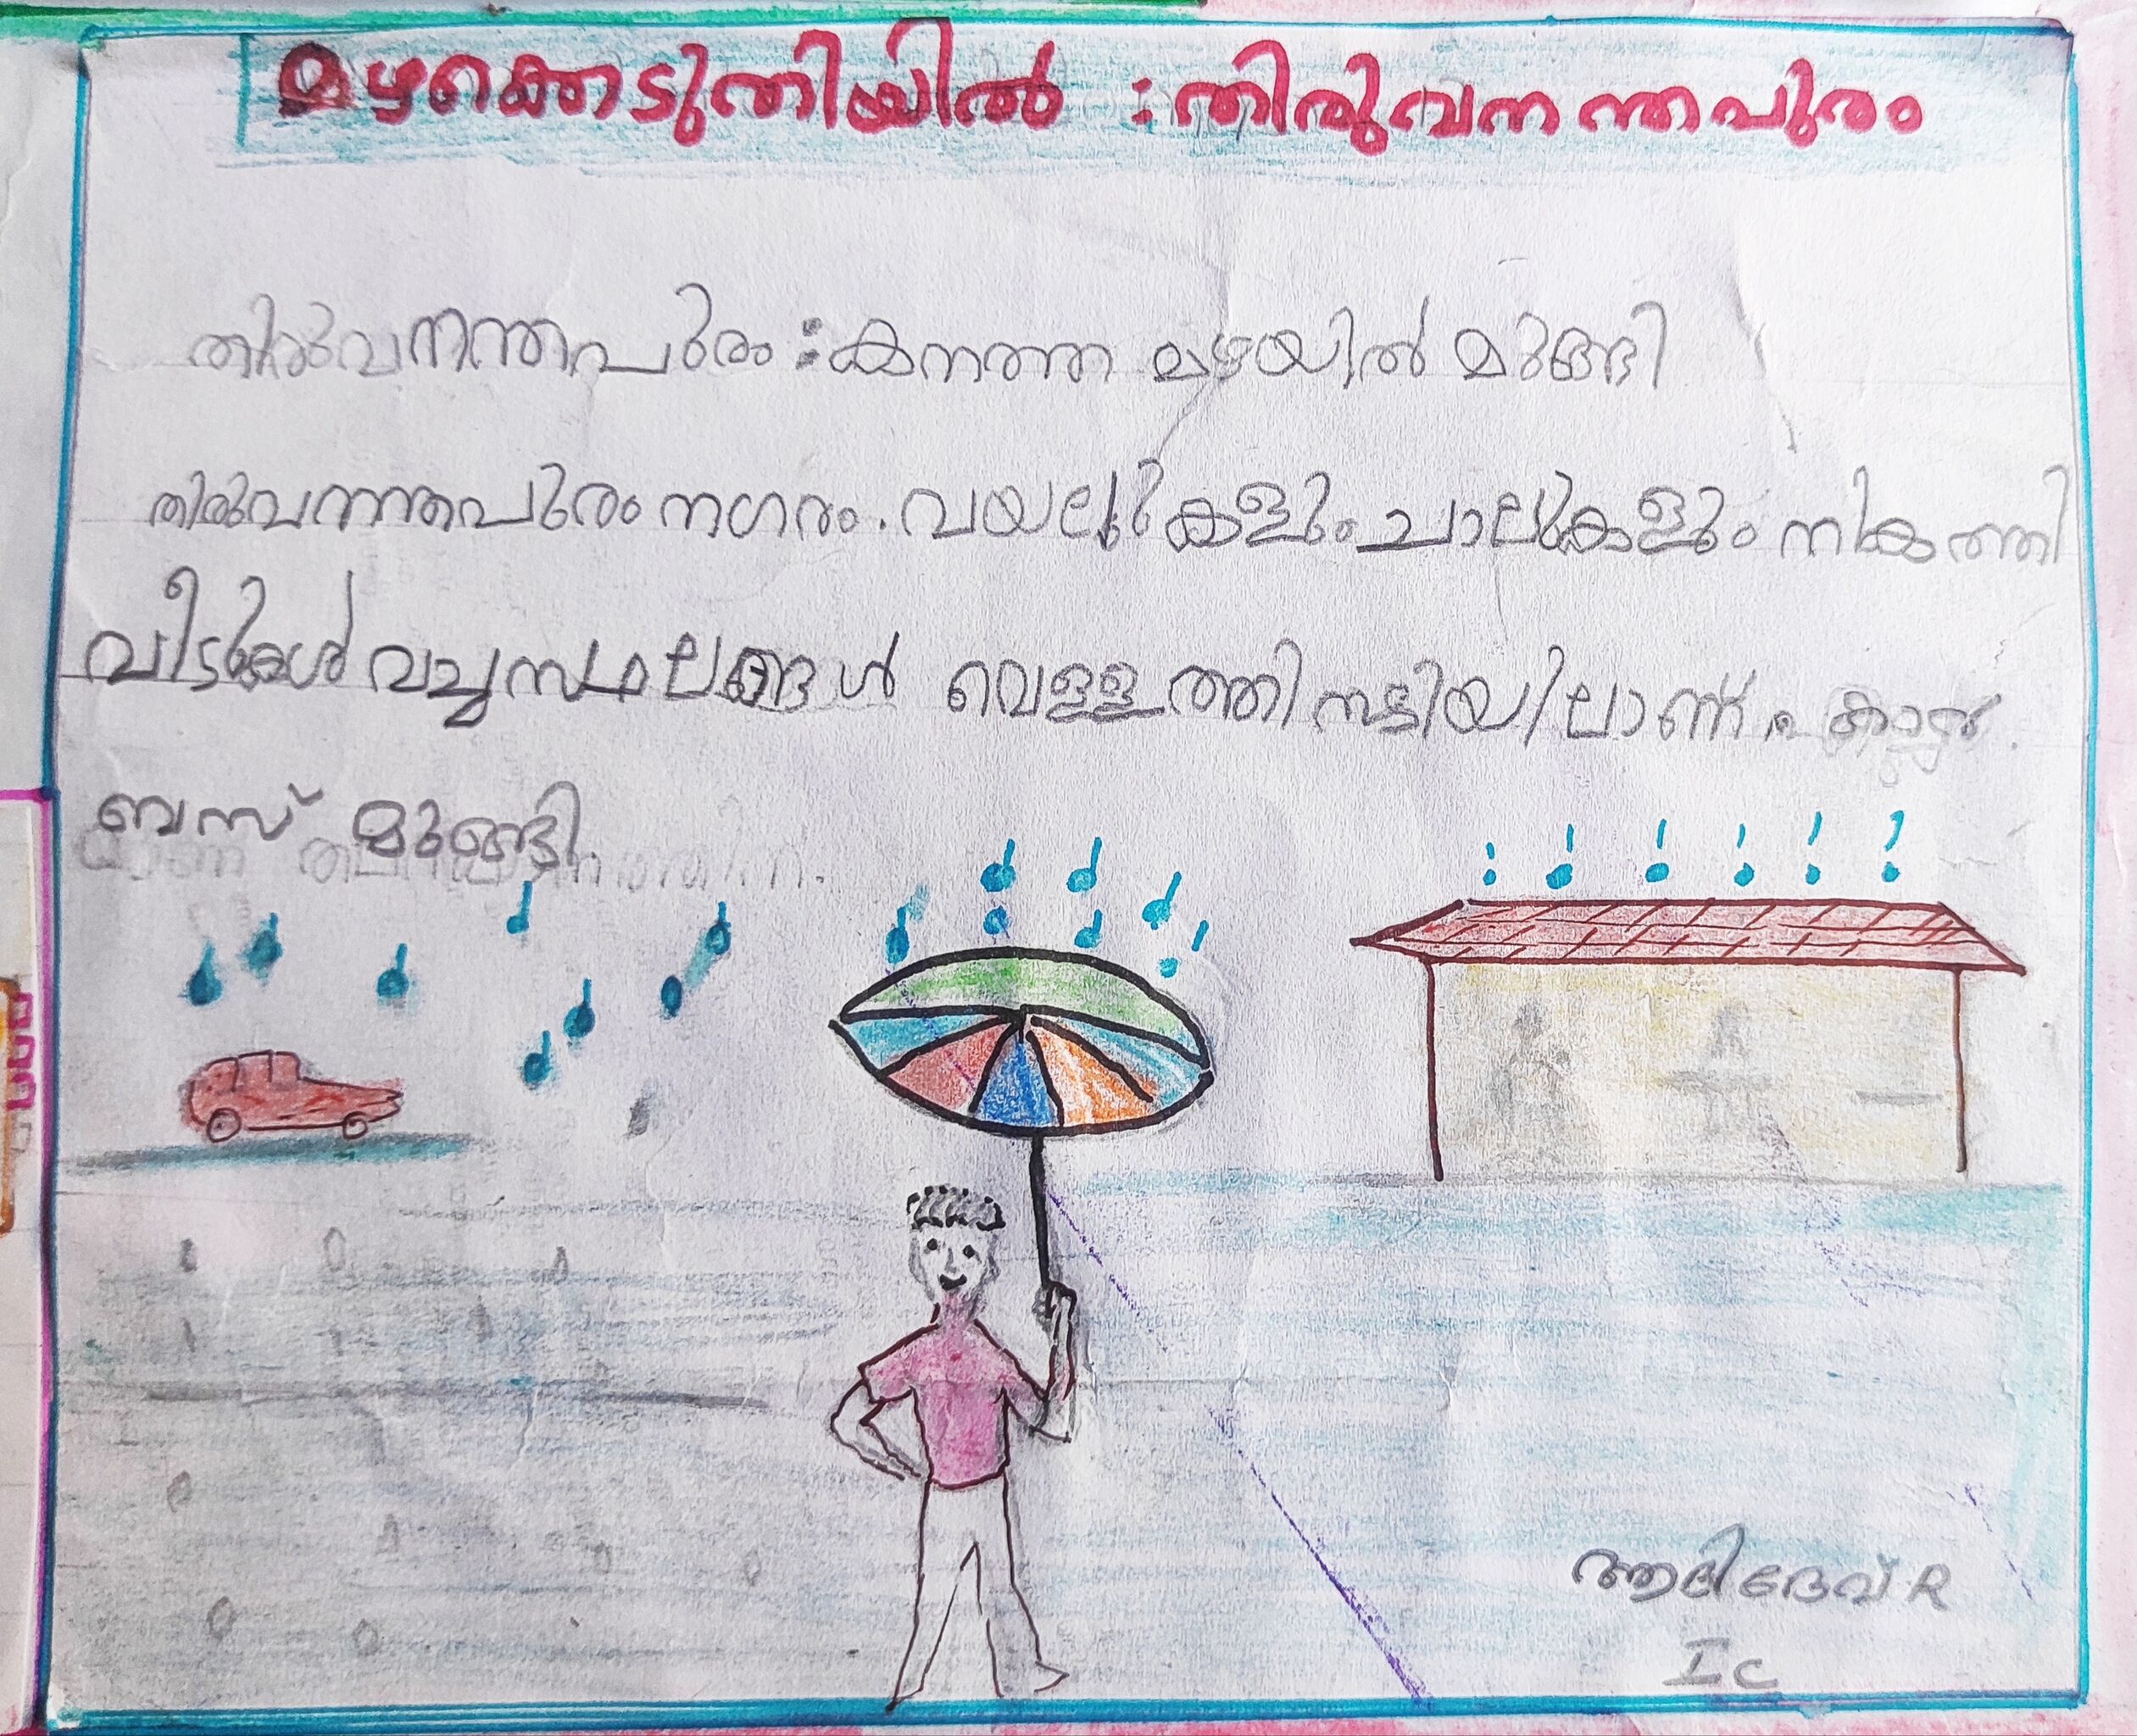 മഴക്കെടുതിയിൽ : തിരുവനന്തപുരം
തിരുവനന്തപുരം : കനത്ത മഴയിൽ മുങ്ങി
തിരുവനന്തപുരം നഗരം. വയലുകളും ചാലുകളും നികത്തി
വീടുകൾ വച്ച സ്ഥലങ്ങൾ വെള്ളത്തിനടിയിലാണ്. കാർ
ബസ് മുങ്ങി.
ആദിദേവ് R
I C